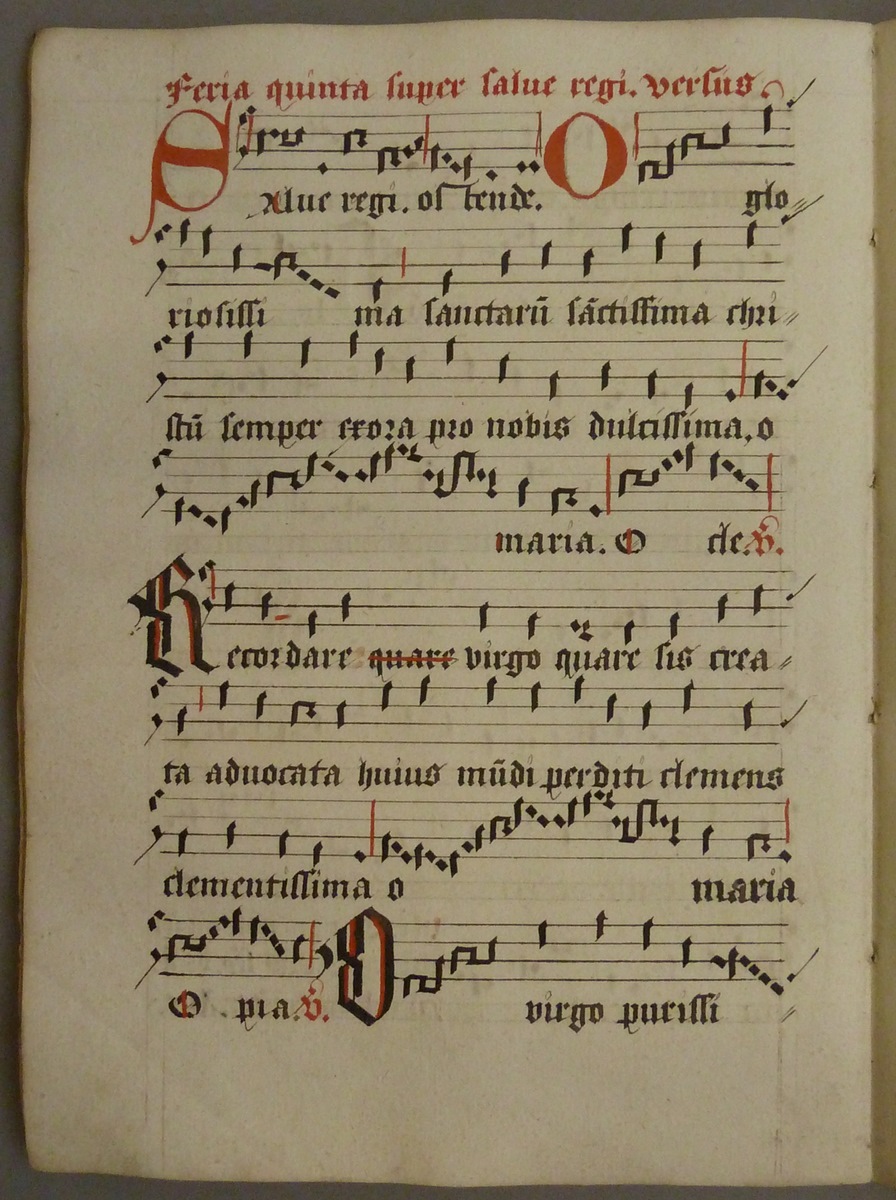 Feria quinta super salue regi. versus.
Salue regi. ostende. O glo
riosissi ma sanctarū sāctissima chri
stū semper exora pro nobis dulcissima. o
maria. O cle. V.
Recordare quare virgo quare sis crea
ta aduocata huius mūdi perditi clemens
clementissima o maria
O pia. V. O virgo purissi